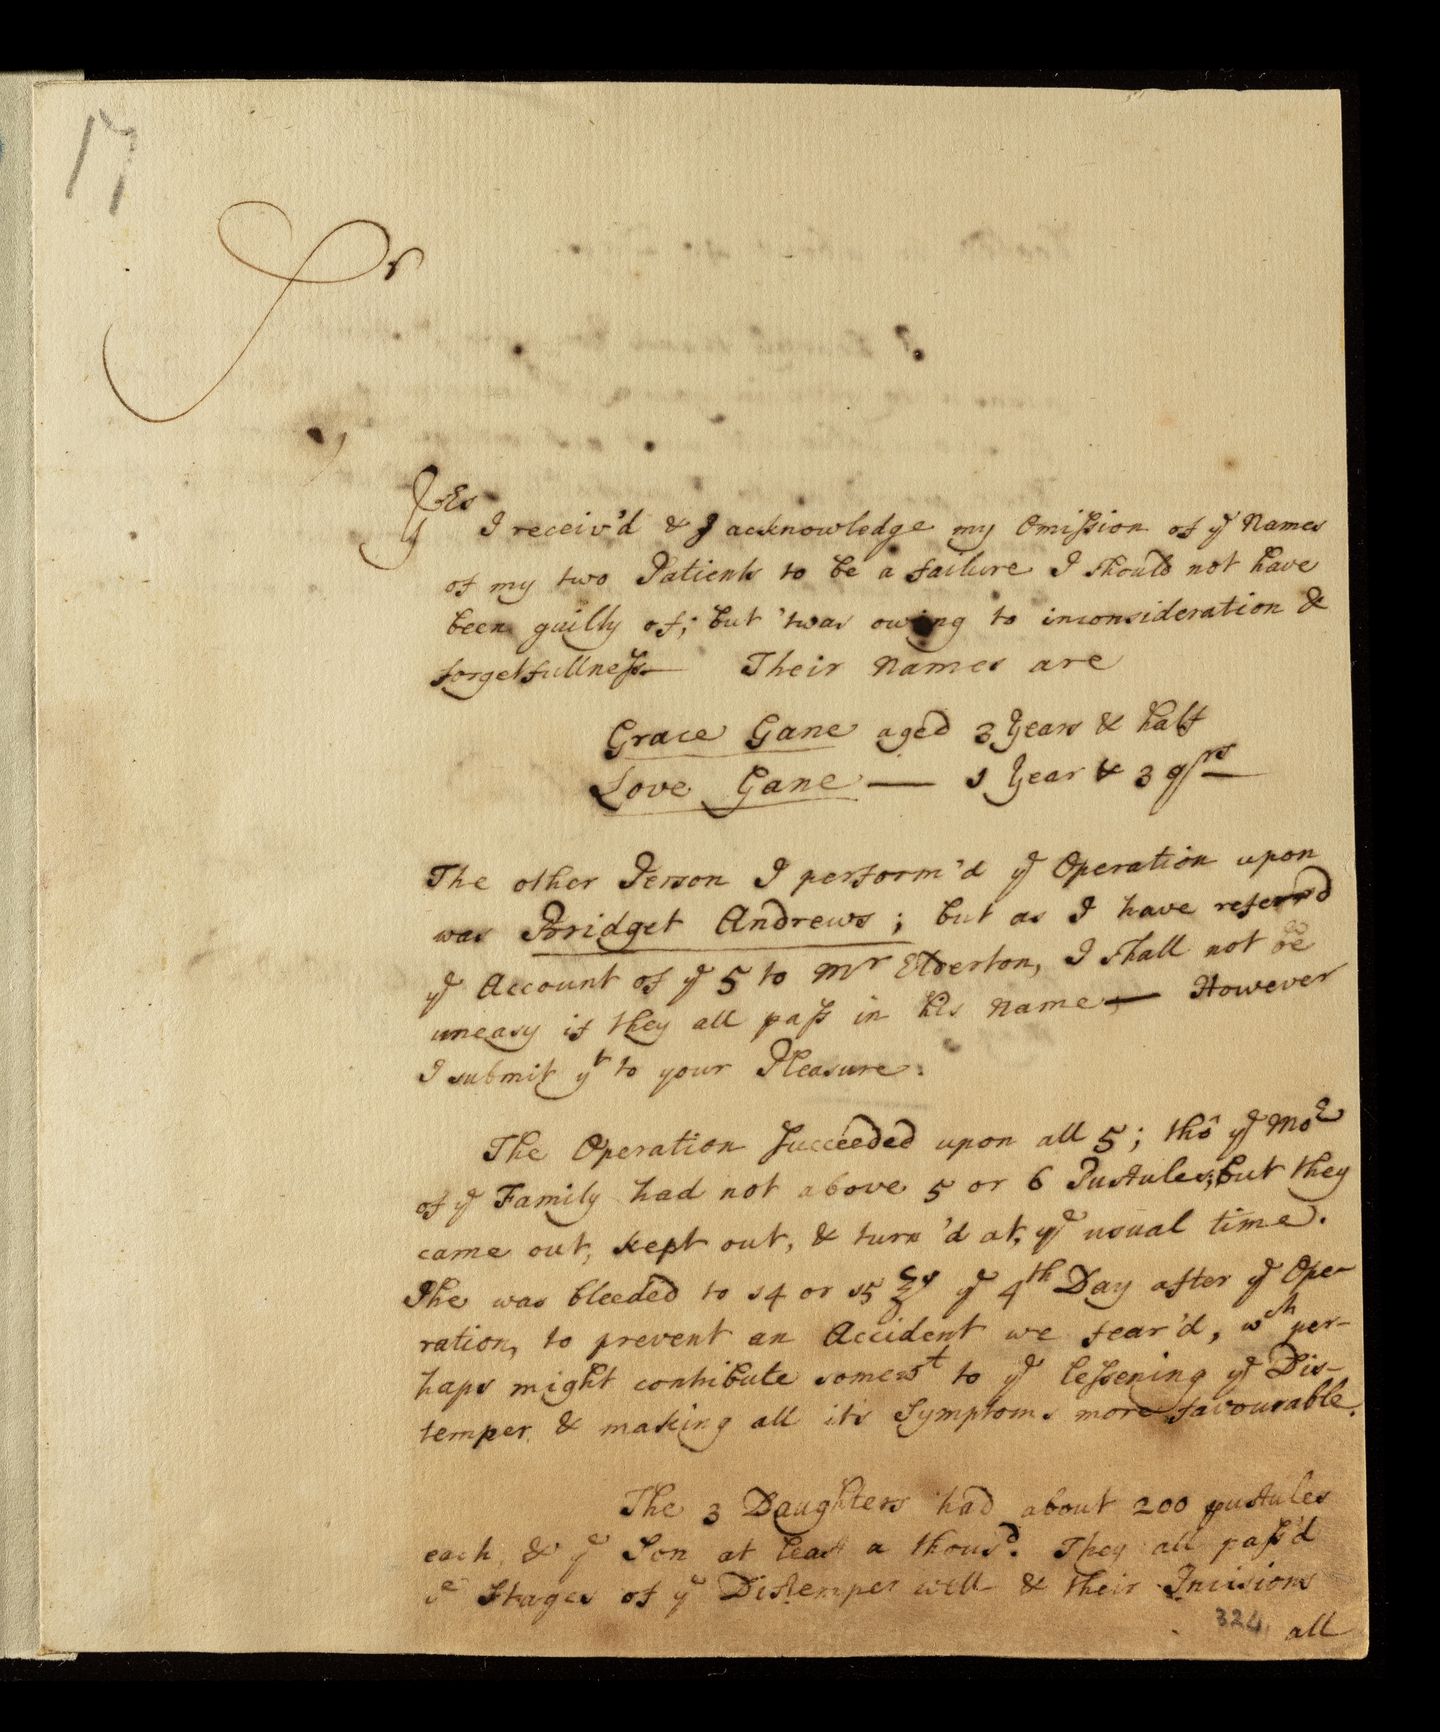 17
Sr
Yrs
I receiv'd & I acknowledge my Omission of ye Names
of my two Patients to be a failure I should not have
been guilty of; but 'twas owing to inconsideration &
forgetfullness— Their Names are
Grace Gane aged 3 Years & half
Love Gane — 1 Year & 3 qrs—
The other Person I perform'd ye Operation upon
was Bridget Andrews; but as I have referrd
ye Account of ye 5 to Mr Elderton, I shall not be
uneasy if they all pass in his Name— However
I submit yt to your Pleasure.
The Operation Succeeded upon all 5; tho' ye Mor
of ye Family had not above 5 or 6 Pustules; but they
came out, kept out, & turn'd at, ye usual time.
She was bleeded to 14 or 15 ℥s ye 4th Day after ye Ope-
ration, to prevent an Accident we fear'd, wch per-
haps might contribute somewt to ye lessening ye Dis-
temper, & making all its Symptoms more favourable.
The 3 Daughters had about 200 pustules
each, & ye Son at least a thousd. They all pass'd
ye Stages of ye Distemper well & their Incisions
324
all